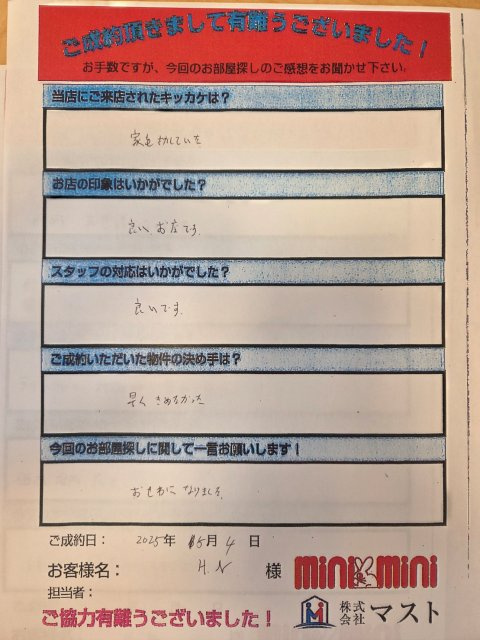 ご成約頂きまして有難うございました！
お手数ですが、今回のお部屋探しのご感想をお聞かせ下さい。
当店にご来店されたキッカケは？
家を探していた
お店の印象はいかがでした？
良いお店です。
スタッフの対応はいかがでした？
良いです。
ご成約いただいた物件の決め手は？
早くきめたかった
今回のお部屋探しに関して一言お願いします！
おせわになりました。
ご成約日： 2025年 5月 4 日
お客様名： H.N 様
mini mini
担当者：
株式会社 マスト
ご協力有難うございました！